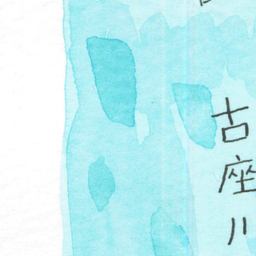 古座川